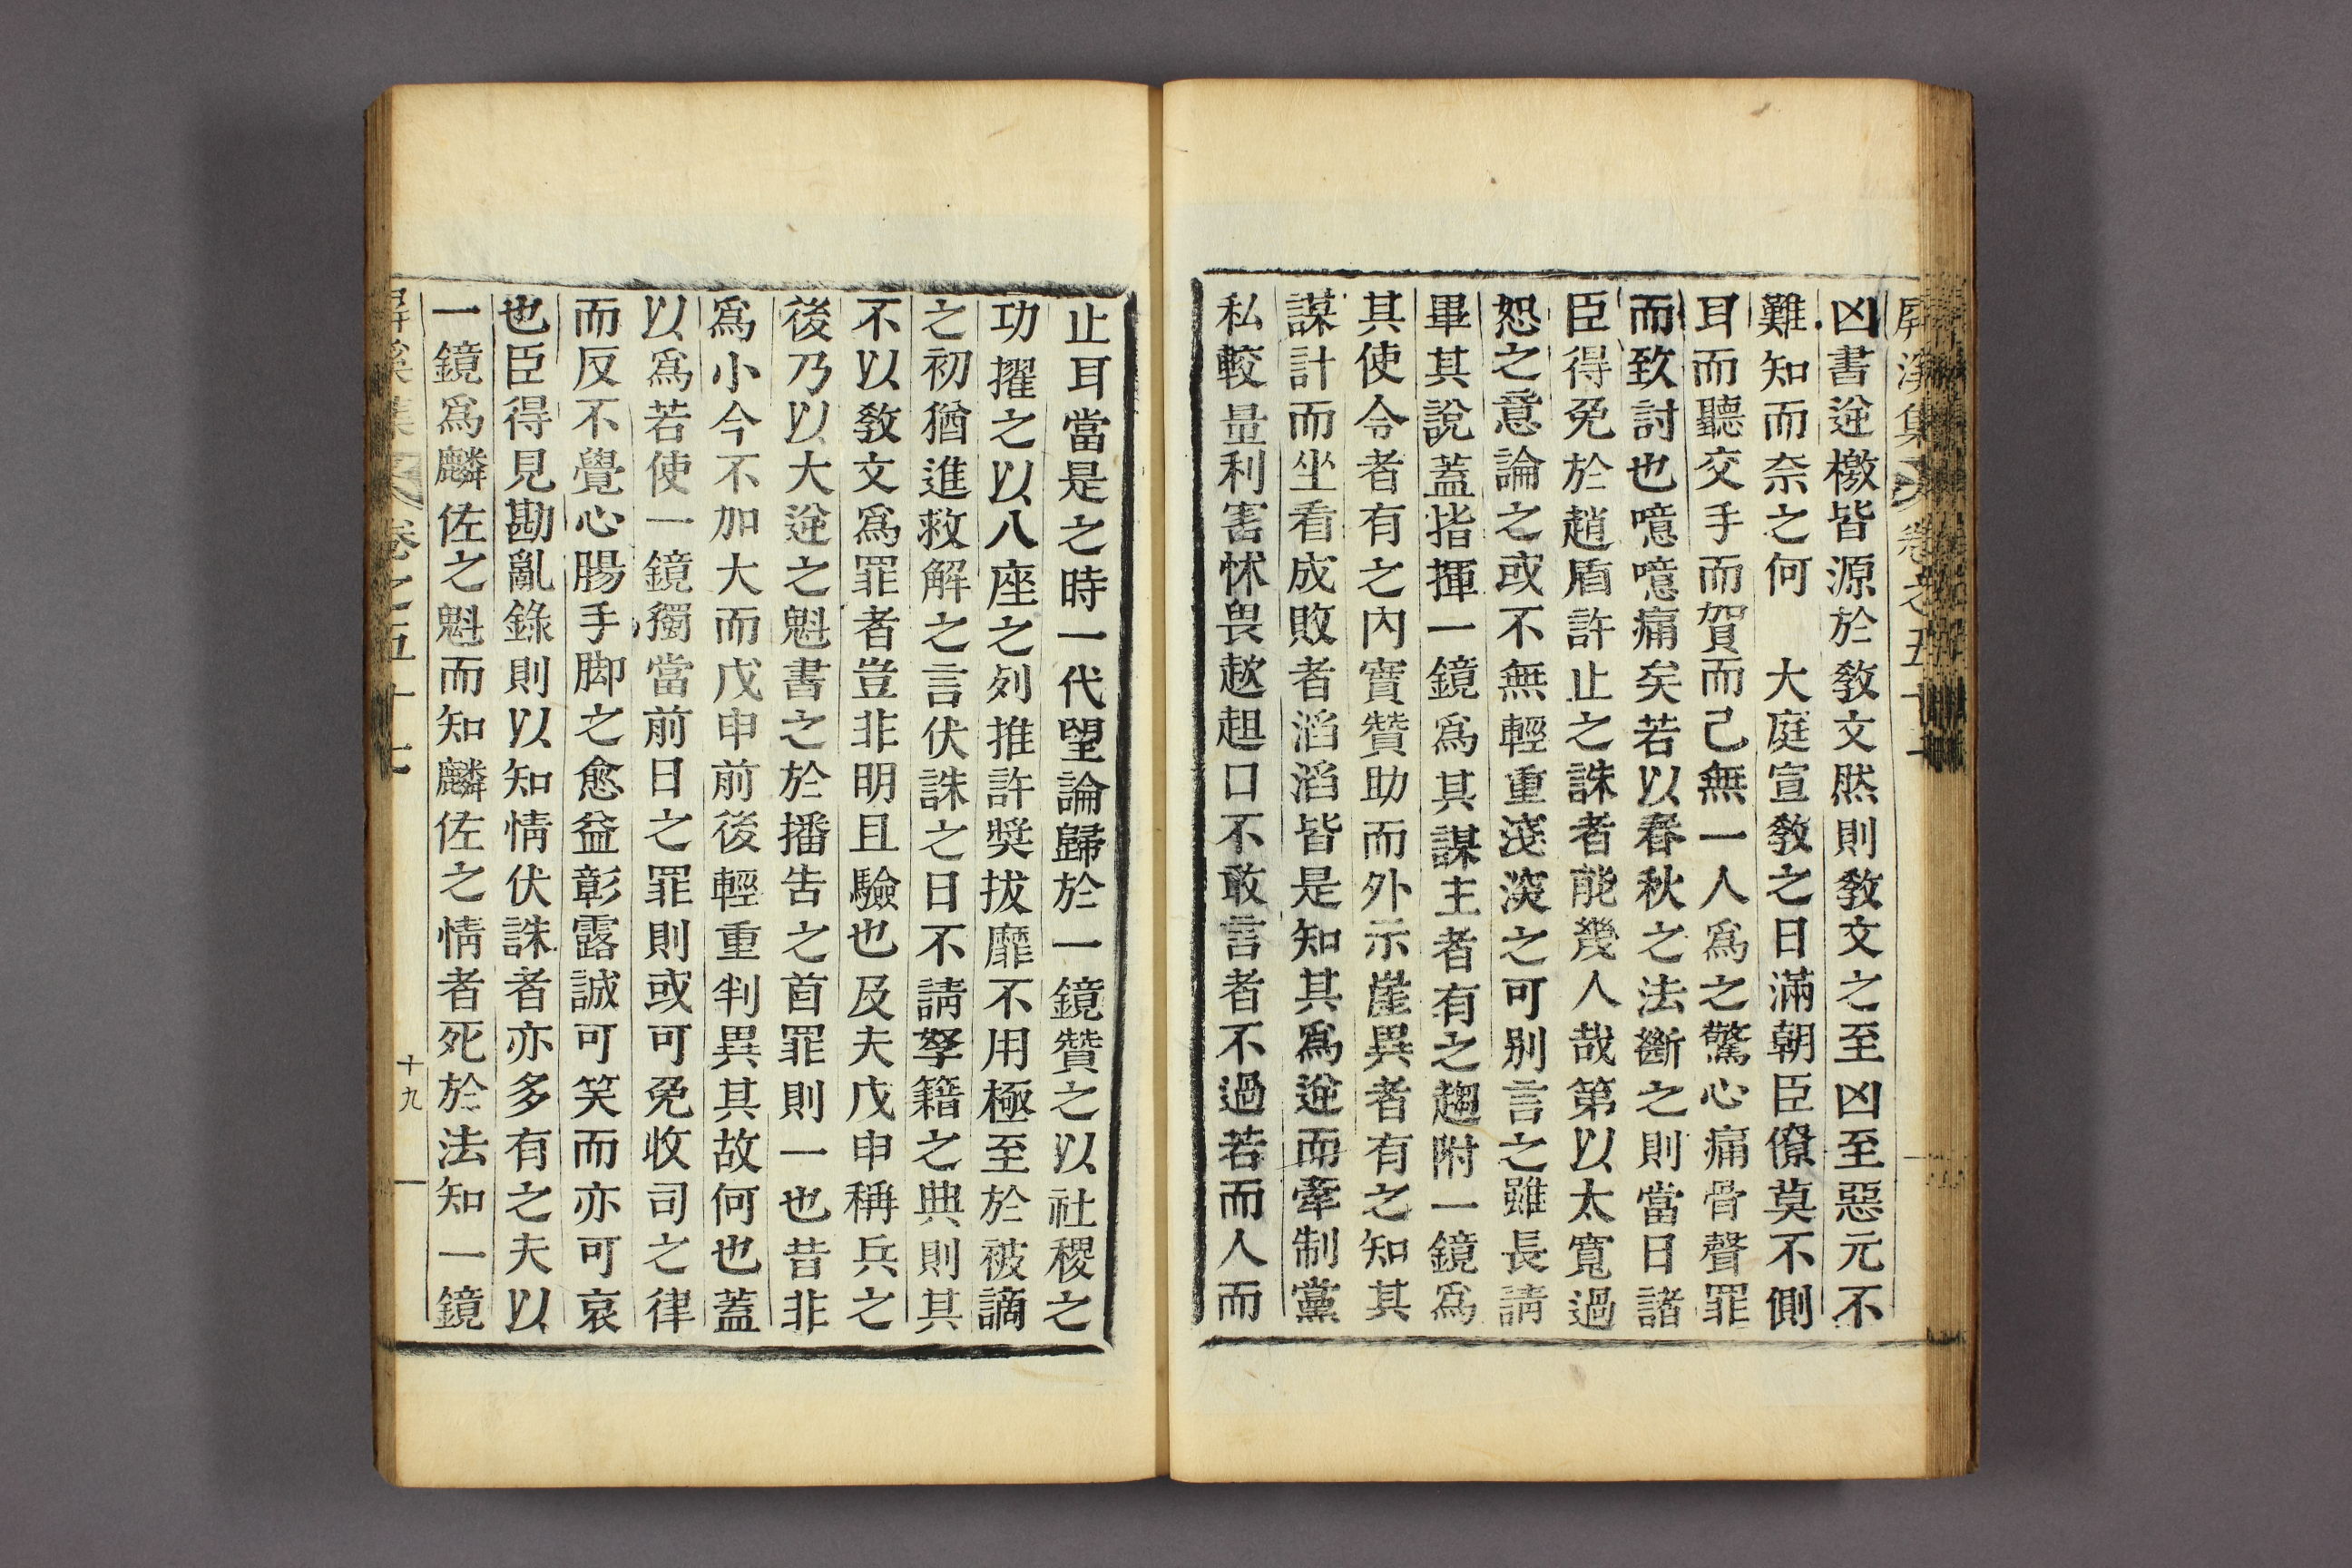 屛溪集 卷之五十七
凶書逆檄皆源於敎文然則敎文之至凶至惡元不
難知而奈之何 大庭宣敎之日滿朝臣僚莫不側
耳而聽交手而賀而己無一人爲之驚心痛骨聲罪
而致討也噫噫痛矣若以春秋之法斷之則當日諸
臣得免於趙盾許止之誅者能幾人哉第以太寬過
恕之意論之或不無輕重淺深之可别言之雖長請
畢其說蓋指揮一鏡爲其謀主者有之趨附一鏡爲
其使令者有之內實贊助而外示崖異者有之知其
謀計而坐看成敗者滔滔皆是知其爲逆而牽制黨
私較量利害怵畏趑趄口不敢言者不過若而人而
止耳當是之時一代望論歸於一鏡贊之以社稷之
功擢之以八座之列推許奬拔靡不用極至於被謫
之初猶進救解之言伏誅之日不請孥籍之典則其
不以敎文爲罪者豈非明且驗也及夫戊申稱兵之
後乃以大逆之魁書之於播告之首罪則一也昔非
爲小今不加大而戊申前後輕重判異其故何也蓋
以爲若使一鏡獨當前日之罪則或可免收司之律
而反不覺心腸手脚之愈益彰露誠可笑而亦可哀
也臣得見勘亂錄則以知情伏誅者亦多有之夫以
一鏡爲麟佐之魁而知麟佐之情者死於法知一鏡
屛溪集 卷之五十七 十九